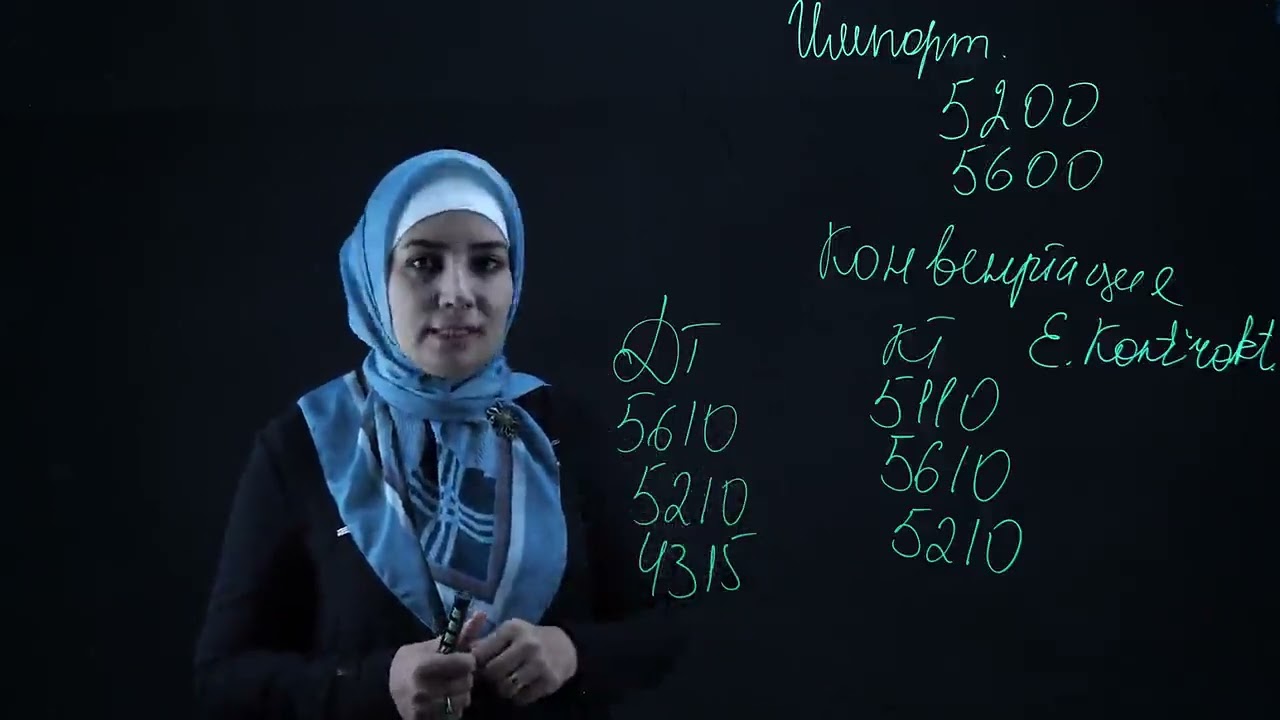 Импорт.
5200
5600
Конвенртация
ДТ КТ E. Kontrakt.
5610 5110
5210 5610
4315 5210